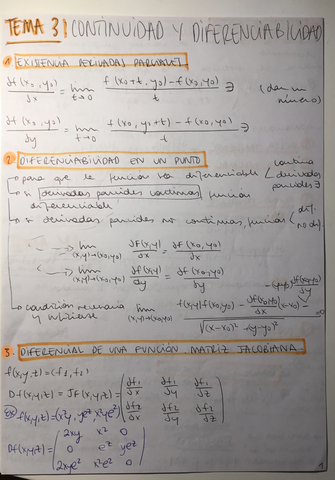 TEMA 3| CONTINUIDAD Y DIFERENCIABILIDAD
1 EXISTENCIA DERIVADAS PARCIALES
∂f(x₀,y₀)/∂x = lim t→0 (f(x₀+t, y₀) − f(x₀,y₀))/t ∃ (dan un número)
∂f(x₀,y₀)/∂y = lim t→0 (f(x₀, y₀+t) − f(x₀,y₀))/t ∃
2 DIFERENCIABILIDAD EN UN PUNTO
para que la función sea diferenciable < continua
derivadas parciales ∃
si derivadas parciales continuas, función diferenciable
si derivadas parciales no continuas, función < dif. no dif.
→ lim (x,y)→(x₀,y₀) ∂f(x,y)/∂x = ∂f(x₀,y₀)/∂x
→ lim (x,y)→(x₀,y₀) ∂f(x,y)/∂y = ∂f(x₀,y₀)/∂y
condición necesaria y suficiente lim (x,y)→(x₀,y₀) (f(x,y) f(x₀,y₀) − ∂f(x₀,y₀)/∂x (x−x₀) − (y−y₀) ∂f(x₀,y₀)/∂y)/√((x−x₀)²+(y−y₀)²) = 0
3. DIFERENCIAL DE UNA FUNCIÓN. MATRIZ JACOBIANA
f(x,y,z) = (f₁,f₂)
Df(x,y,z) = Jf(x,y,z) = (∂f₁/∂x ∂f₁/∂y ∂f₁/∂z
∂f₂/∂x ∂f₂/∂y ∂f₂/∂z)
Ex f(x,y,z) = (x²y, yeᶻ, x²yeᶻ)
Df(x,y,z) = (2xy x² 0
0 eᶻ yeᶻ
2xyeᶻ x²eᶻ 0)
1